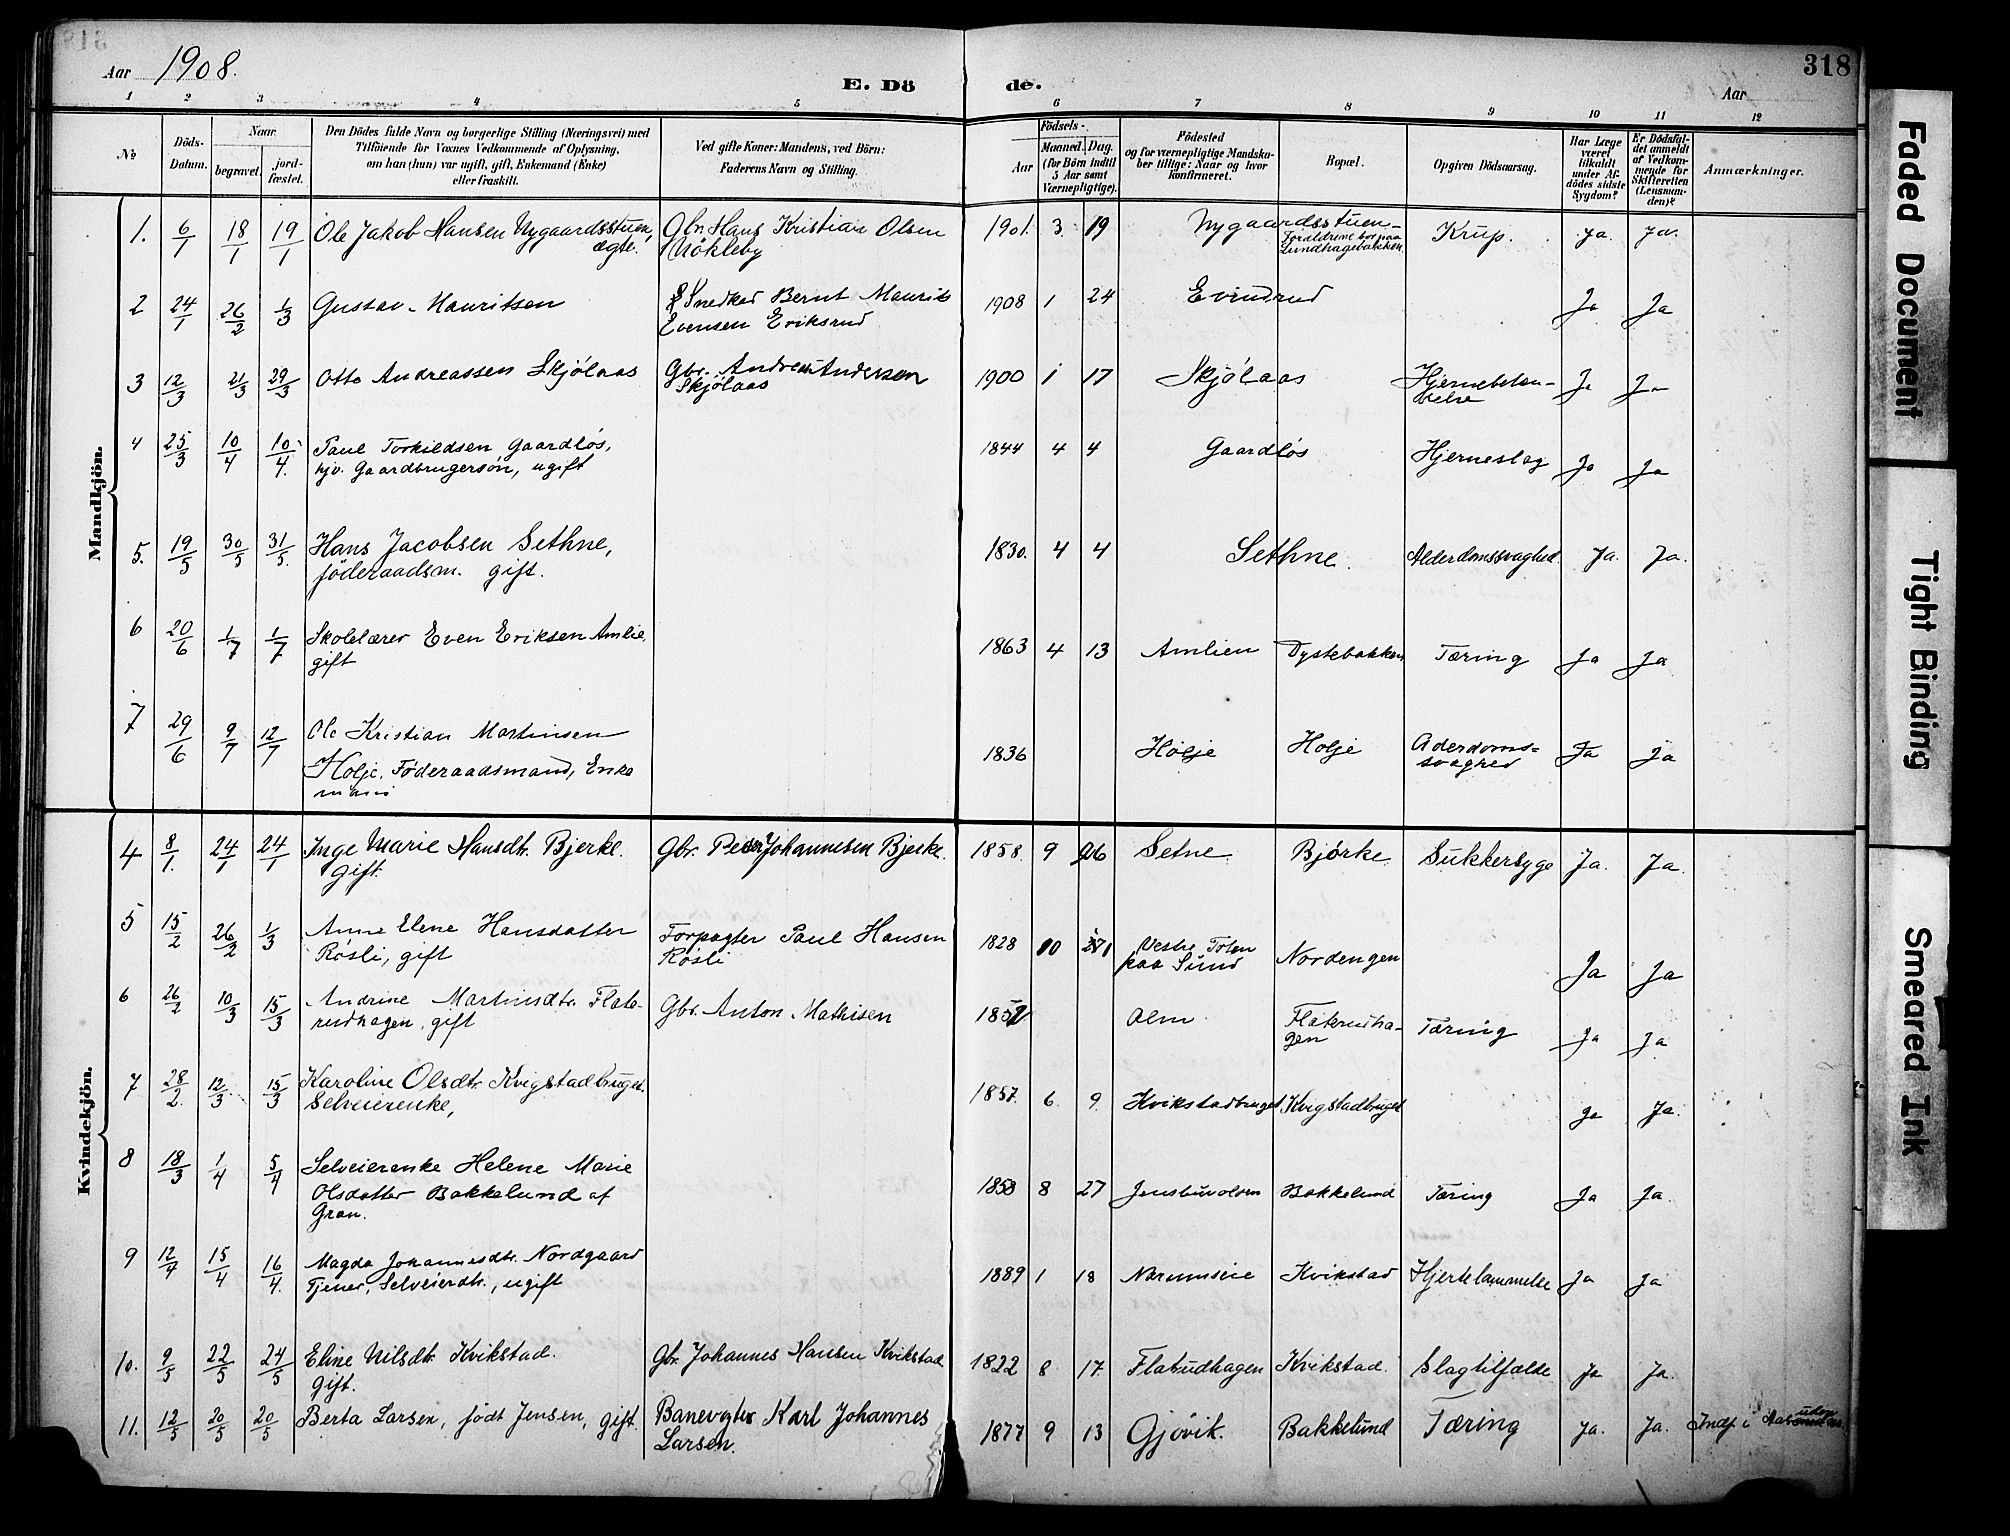 318
Aar 1908.
E. Dö
de.
Aar
1 2 3 4 5 6 7 8 9 10 11 12
No
Döds-
Datum.
Naar
begravet.
jord-
fæstet.
Den Dödes fulde Navn og borgerlige Stilling (Næringsvei) med
Tilföiende for Voxnes Vedkommende af Oplysning,
om han (hun) var ugift, gift, Enkemand (Enke)
eller fraskilt.
Ved gifte Koner: Mandens, ved Börn:
Faderens Navn og Stilling.
Födsels-
Aar
Maaned. Dag.
(for Börn indtil
5 Aar samt
Værnepligtige).
Födested
og for værnepligtige Mandska-
ber tillige: Naar og hvor
konfirmeret.
Bopæl.
Opgiven Dödsaarsag.
Har Læge
været
tilkaldt
under Af-
dödes sidste
Sygdom?
Er Dödsfal-
det anmeldt
af Vedkom-
mende for
Skifteretten
(Lensman-
den)?
Anmærkninger.
Mandkjön.
1. 6/1 18/1 19/1 Ole Jakob Hansen Nygaardsstuen, Gbr. Hans Kristian Olsen 1901. 3 19 Nygaardsstuen- Krup. Ja. Ja.
ægte. Nökleby Forældrene bor paa
Lundhagebakken.
2 24/1 26/2 1/3 Gustav Mauritsen Snedker Bernt Maurits 1908 1 24 Evindrud Ja Ja
Evensen Eriksrud
3 12/3 21/3 29/3 Otto Andreassen Skjölaas Gbr. Andreas Andersen 1900 1 17 Skjölaas Hjernebetæn- Ja Ja
Skjölaas delse
4 25/3 10/4 10/4. Paul Torkildsen Gaardløs, 1844 4 4 Gaardløs Hjerneslag Ja Ja
hjv. Gaardbrugersøn, ugift
5. 19/5 30/5 31/5. Hans Jacobsen Sethne, 1830. 4 4 Sethne. Alderdomssvaghed. Ja. Ja.
föderaadsm. gift.
6 20/6 1/7 1/7 Skolelærer Even Eriksen Amlie, 1863 4 13 Amlien Dystebakken Tæring Ja Ja
gift
7 29/6 9/7 12/7 Ole Kristian Martinsen 1836 Hølje Holje Aderdoms- Ja Ja
Holje, Föderaadsmand, Enke svaghed
mand
Kvindekjön.
4 8/1. 24/1 24/1 Inge Marie Hansdtr. Bjerke. Gbr. Peder Johannesen Bjerke. 1858. 9 26 Setne. Björke. Sukkersyge Ja. Ja.
Gift.
5 15/2 26/2 1/3 Anne Elene Hansdatter Forpagter Paul Hansen 1828 10 Vestre Toten Nordengen Ja Ja
Røsli, gift Røsli paa Sund
6 26/2 10/3 15/3 Andrine Martinsdtr. Flate- Gbr. Anton Mathisen Alm Flaterudha- Tæring Ja Ja
rudhagen, gift gen
7 28/2. 12/3. 15/3 Karoline Olsdtr. Kvigstadbruget. 1857. 6 9. Kvikstadbruget Kvigstadbruget Ja Ja.
Selveierenke,
8 18/3 1/4 5/4 Selveierenke Helene Marie 1858 8 27 Bakkelund Tæring Ja Ja.
Olsdatter Bakkelund af
Gran.
9 12/4 15/4 16/4. Magda Johannesdtr. Nordgaard 1889 1 18 Kvikstad Hjertelammelse Ja Ja
Tjener, Selveierdtr., ugift
10. 9/5 22/5 24/5 Eline Nilsdtr. Kvikstad. Gbr. Johannes Hansen Kvikstad 1822 8 17. Flatrudhagen Kvikstad. Slagtilfælde Ja Ja.
Gift.
11. 12/5 20/5 20/5 Berta Larsen, født Jensen, gift. Banevogter Karl Johannes 1877 9 13 Gjövik. Bakkelund Tæring Ja. Ja. Indf i
Larsen.
Faded Document
Tight Binding
Smeared Ink